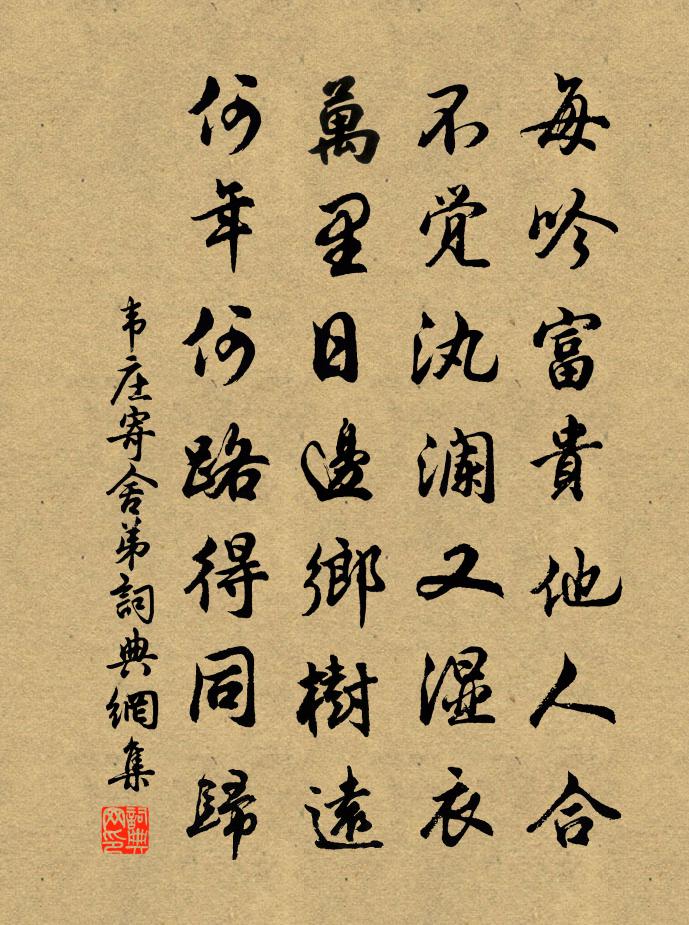 每吟富貴他人合
不覚汍澜又湿衣
萬里日邊鄉樹遠
何年何路得同歸
韦庄寄舍弟詞典網集
詞典网印